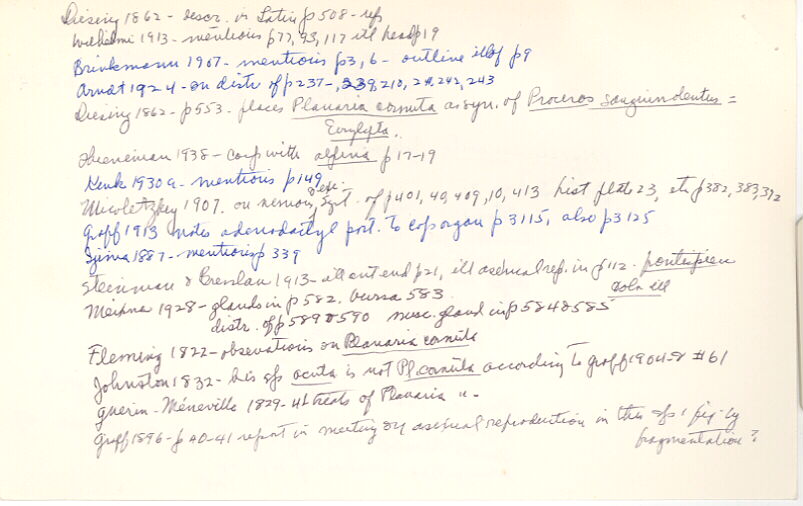 Diesing 1862 - descr. in Latin p 508 - refs
Wilhelmi 1913 - mentions p 77, 93, 117 ill head p 19
Brinkmann 1907 - mentions p 3, 6 - outline ill of p 9
Arndt 1924 - on distr of p 237-, 239, 210, 242, 243
Diesing 1862 - p 553 - places Planaria cornuta as syn. of Proceros sanguinolentus =
Eurylepta.
1938 - comp with alpina p 17-19
Kenk 1930a - mentions p 149
Micoletzky 1907. on nervous & exc. syst. of p 401, 40, 409, 10, 413 hist plate 23, etc p 382, 383, 392
Graff 1913 notes adenodactyl post. to cop organ p 3115, also p 3125
Ijima 1887 - mentions p 339
Steinmann & Bresslau 1913 - ill ant end p 21, ill asexual rep. in p 112.
Meixner 1928 - glands in p 582. bursa 583.
distr. of p 589 & 590 musc. gland in p 584 & 585
Fleming 1822 - observations on Planaria cornuta
Johnston 1832 - his sp acuta is not Pl cornuta according to Graff 1904-8 #61
Guerin-Méneville 1829-44 treats of Planaria
Graff 1896 - p 40-41 report in meeting on asexual reproduction in this sp; fig. by
fragmentation?